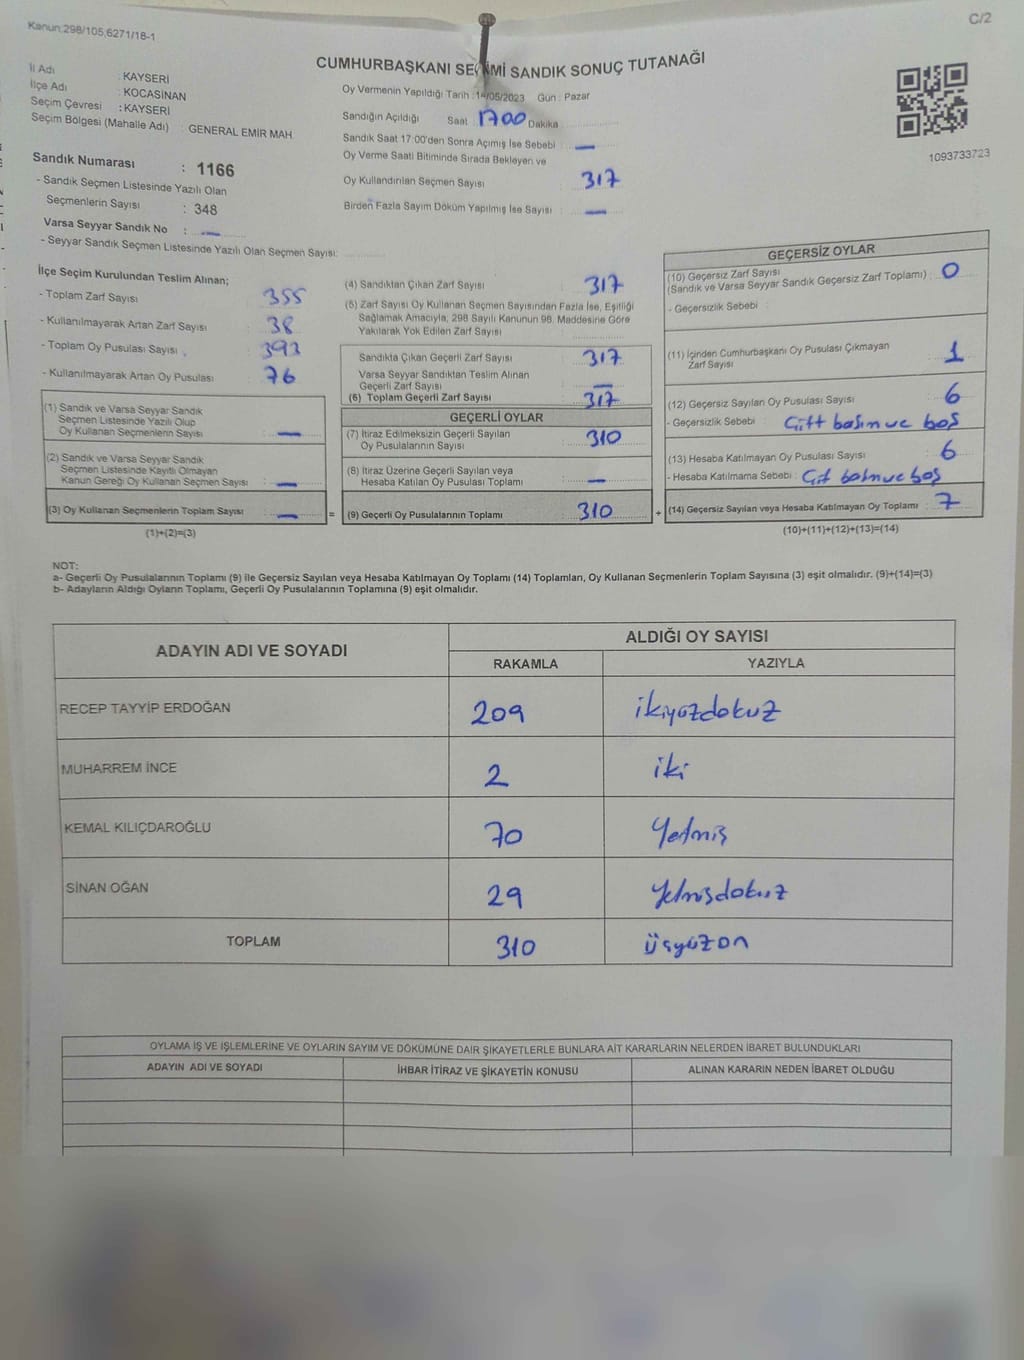 Kanun:298/105,6271/18-1
C/2
CUMHURBAŞKANI SEÇİMİ SANDIK SONUÇ TUTANAĞI
İl Adı : KAYSERİ
İlçe Adı : KOCASİNAN
Seçim Çevresi : KAYSERİ
Seçim Bölgesi (Mahalle Adı) : GENERAL EMİR MAH
Oy Vermenin Yapıldığı Tarih : 14/05/2023 Gün : Pazar
Sandığın Açıldığı Saat : 17 00 Dakika
Sandık Saat 17:00'den Sonra Açımış İse Sebebi : —
Oy Verme Saati Bitiminde Sırada Bekleyen ve
Oy Kullandırılan Seçmen Sayısı : 317
Birden Fazla Sayım Döküm Yapılmış İse Sayısı : —
1093733723
Sandık Numarası : 1166
- Sandık Seçmen Listesinde Yazılı Olan
Seçmenlerin Sayısı : 348
Varsa Seyyar Sandık No : —
- Seyyar Sandık Seçmen Listesinde Yazılı Olan Seçmen Sayısı:
İlçe Seçim Kurulundan Teslim Alınan;
- Toplam Zarf Sayısı 355
- Kullanılmayarak Artan Zarf Sayısı : 38
- Toplam Oy Pusulası Sayısı 393
- Kullanılmayarak Artan Oy Pusulası : 76
(1) Sandık ve Varsa Seyyar Sandık
Seçmen Listesinde Yazılı Olup
Oy Kullanan Seçmenlerin Sayısı : —
(2) Sandık ve Varsa Seyyar Sandık
Seçmen Listesinde Kayıtlı Olmayan
Kanun Gereği Oy Kullanan Seçmen Sayısı : —
(3) Oy Kullanan Seçmenlerin Toplam Sayısı : — =
(1)+(2)=(3)
(4) Sandıktan Çıkan Zarf Sayısı : 317
(5) Zarf Sayısı Oy Kullanan Seçmen Sayısından Fazla İse, Eşitliği
Sağlamak Amacıyla, 298 Sayılı Kanunun 98. Maddesine Göre
Yakılarak Yok Edilen Zarf Sayısı :
Sandıkta Çıkan Geçerli Zarf Sayısı : 317
Varsa Seyyar Sandıktan Teslim Alınan
Geçerli Zarf Sayısı : —
(6) Toplam Geçerli Zarf Sayısı : 317
GEÇERLİ OYLAR
(7) İtiraz Edilmeksizin Geçerli Sayılan
Oy Pusulalarının Sayısı : 310
(8) İtiraz Üzerine Geçerli Sayılan veya
Hesaba Katılan Oy Pusulası Toplamı : —
(9) Geçerli Oy Pusulalarının Toplamı : 310 +
GEÇERSİZ OYLAR
(10) Geçersiz Zarf Sayısı
(Sandık ve Varsa Seyyar Sandık Geçersiz Zarf Toplamı) : 0
- Geçersizlik Sebebi :
(11) İçinden Cumhurbaşkanı Oy Pusulası Çıkmayan
Zarf Sayısı : 1
(12) Geçersiz Sayılan Oy Pusulası Sayısı : 6
- Geçersizlik Sebebi : Çift basım ve boş
(13) Hesaba Katılmayan Oy Pusulası Sayısı : 6
- Hesaba Katılmama Sebebi : Çift basım ve boş
(14) Geçersiz Sayılan veya Hesaba Katılmayan Oy Toplamı : 7
(10)+(11)+(12)+(13)=(14)
NOT:
a- Geçerli Oy Pusulalarının Toplamı (9) ile Geçersiz Sayılan veya Hesaba Katılmayan Oy Toplamı (14) Toplamları, Oy Kullanan Seçmenlerin Toplam Sayısına (3) eşit olmalıdır. (9)+(14)=(3)
b- Adayların Aldığı Oyların Toplamı, Geçerli Oy Pusulalarının Toplamına (9) eşit olmalıdır.
ADAYIN ADI VE SOYADI
ALDIĞI OY SAYISI
RAKAMLA YAZIYLA
RECEP TAYYİP ERDOĞAN 209 ikiyüzdokuz
MUHARREM İNCE 2 iki
KEMAL KILIÇDAROĞLU 70 Yetmiş
SİNAN OĞAN 29 Yetmişdokuz
TOPLAM 310 üçyüzon
OYLAMA İŞ VE İŞLEMLERİNE VE OYLARIN SAYIM VE DÖKÜMÜNE DAİR ŞİKAYETLERLE BUNLARA AİT KARARLARIN NELERDEN İBARET BULUNDUKLARI
ADAYIN ADI VE SOYADI İHBAR İTİRAZ VE ŞİKAYETİN KONUSU ALINAN KARARIN NEDEN İBARET OLDUĞU